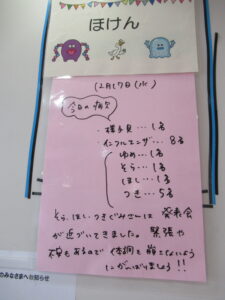 ほけん
12月17日(水)
今日の病欠
・様子見…1名
・インフルエンザ…8名
ゆめ…1名
そら…1名
ほし…1名
つき…5名
そら、ほし、つきぐみさんは 発表会
が近づいてきました。緊張や
不安もあるので 体調を崩さないよう
にがんばりましょう!!
のみなさまへお知らせ